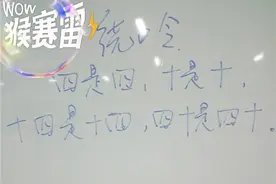 Wow
猴赛雷
绕口令
四是四，十是十，
十四是十四，四十是四十。